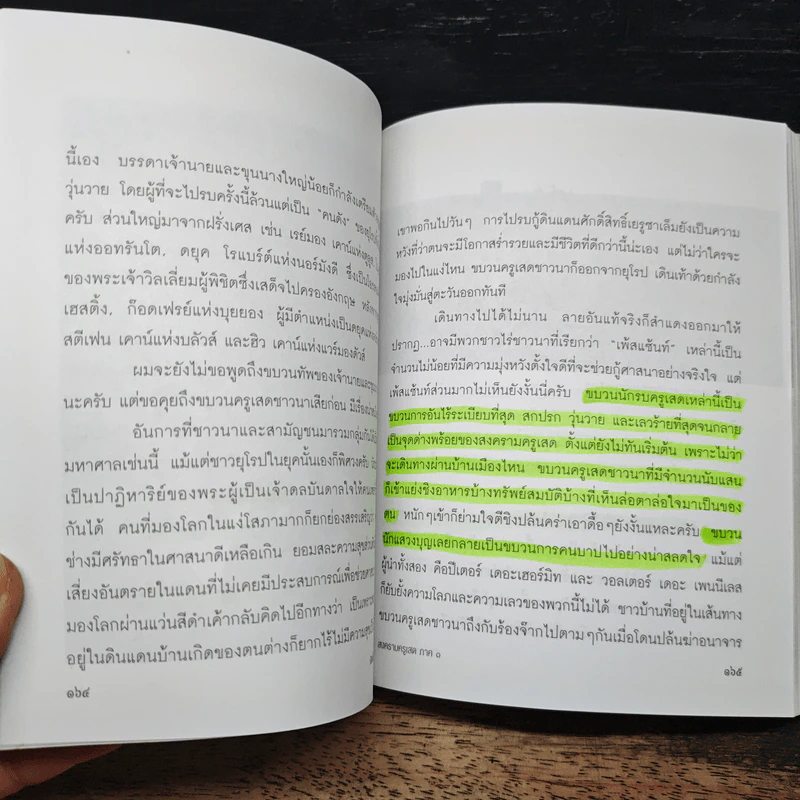 นี้เอง บรรดาเจ้านายและขุนนางใหญ่น้อยก็กำลังเตรียมตัว
วุ่นวาย โดยผู้ที่จะไปรบครั้งนี้ล้วนแต่เป็น "คนดัง"
ครับ ส่วนใหญ่มาจากฝรั่งเศส เช่น เรย์มอง เคาน์แห่งตูลูส
แห่งออทรันโต, ดยุค โรแบร์ต์แห่งนอร์มังดี ซึ่งเป็น
ของพระเจ้าวิลเลี่ยมผู้พิชิตซึ่งเสด็จไปครองอังกฤษ
เฮสติ้ง, ก๊อดเฟรย์แห่งบุยยอง ผู้มีตำแหน่งเป็นดยุค
สตีเฟน เคาน์แห่งบลัวส์ และฮิว เคาน์แห่งแวร์มองดัวส์
ผมจะยังไม่ขอพูดถึงขบวนทัพของเจ้านายและขุน
นะครับ แต่ขอคุยถึงขบวนครูเสดชาวนาเสียก่อน มีเรื่อง
อันการที่ชาวนาและสามัญชนมารวมกลุ่มกัน
มหาศาลเช่นนี้ แม้แต่ชาวยุโรปในยุคนั้นเองก็พิศวงครับ
เป็นปาฏิหาริย์ของพระผู้เป็นเจ้าดลบันดาลใจให้คน
กันได้ คนที่มองโลกในแง่โสภามากก็ยกย่องสรรเสริญ
ช่างมีศรัทธาในศาสนาดีเหลือเกิน ยอมสละความสุข
เสี่ยงอันตรายในแดนที่ไม่เคยมีประสบการณ์เพื่อช่วย
มองโลกผ่านแว่นสีดำเค้ากลับคิดไปอีกทางว่า
อยู่ในดินแดนบ้านเกิดของตนต่างก็ยากไร้ไม่มีความสุข
๑๖๔
เขาพอกินไปวันๆ การไปรบกู้ดินแดนศักดิ์สิทธิ์เยรูซาเล็มยังเป็นความ
หวังที่ว่าตนจะมีโอกาสร่ำรวยและมีชีวิตที่ดีกว่านี้น่ะเอง แต่ไม่ว่าใครจะ
มองไปในแง่ไหน ขบวนครูเสดชาวนาก็ออกจากยุโรป เดินเท้าด้วยกำลัง
ใจมุ่งมั่นสู่ตะวันออกทันที
เดินทางไปได้ไม่นาน ลายอันแท้จริงก็สำแดงออกมาให้
ปรากฏ...อาจมีพวกชาวไร่ชาวนาที่เรียกว่า "เพ้สแซ้นท์" เหล่านี้เป็น
จำนวนไม่น้อยที่มีความมุ่งหวังตั้งใจดีที่จะช่วยกู้ศาสนาอย่างจริงใจ แต่
เพ้สแซ้นท์ส่วนมากไม่เห็นยังงั้นนี่ครับ ขบวนนักรบครูเสดเหล่านี้เป็น
ขบวนการอันไร้ระเบียบที่สุด สกปรก วุ่นวาย และเลวร้ายที่สุดจนกลาย
เป็นจุดด่างพร้อยของสงครามครูเสด ตั้งแต่ยังไม่ทันเริ่มต้น เพราะไม่ว่า
จะเดินทางผ่านบ้านเมืองไหน ขบวนครูเสดชาวนาที่มีจำนวนนับแสน
ก็เข้าแย่งชิงอาหารบ้างทรัพย์สมบัติบ้างที่เห็นล่อตาล่อใจมาเป็นของ
ตน หนักๆเข้าก็ย่ามใจตีชิงปล้นคร่าเอาดื้อๆยังงั้นแหละครับ ขบวน
นักแสวงบุญเลยกลายเป็นขบวนการคนบาปไปอย่างน่าสลดใจ แม้แต่
ผู้นำทั้งสอง คือปีเตอร์ เดอะเฮอร์มิท และ วอลเตอร์ เดอะ เพนนีเลส
ก็ยับยั้งความโลภและความเลวของพวกนี้ไม่ได้ ชาวบ้านที่อยู่ในเส้นทาง
ขบวนครูเสดชาวนาถึงกับร้องจ๊ากไปตามๆกันเมื่อโดนปล้นฆ่าอนาจาร
สงครามครูเสด ภาค ๑
๑๖๕